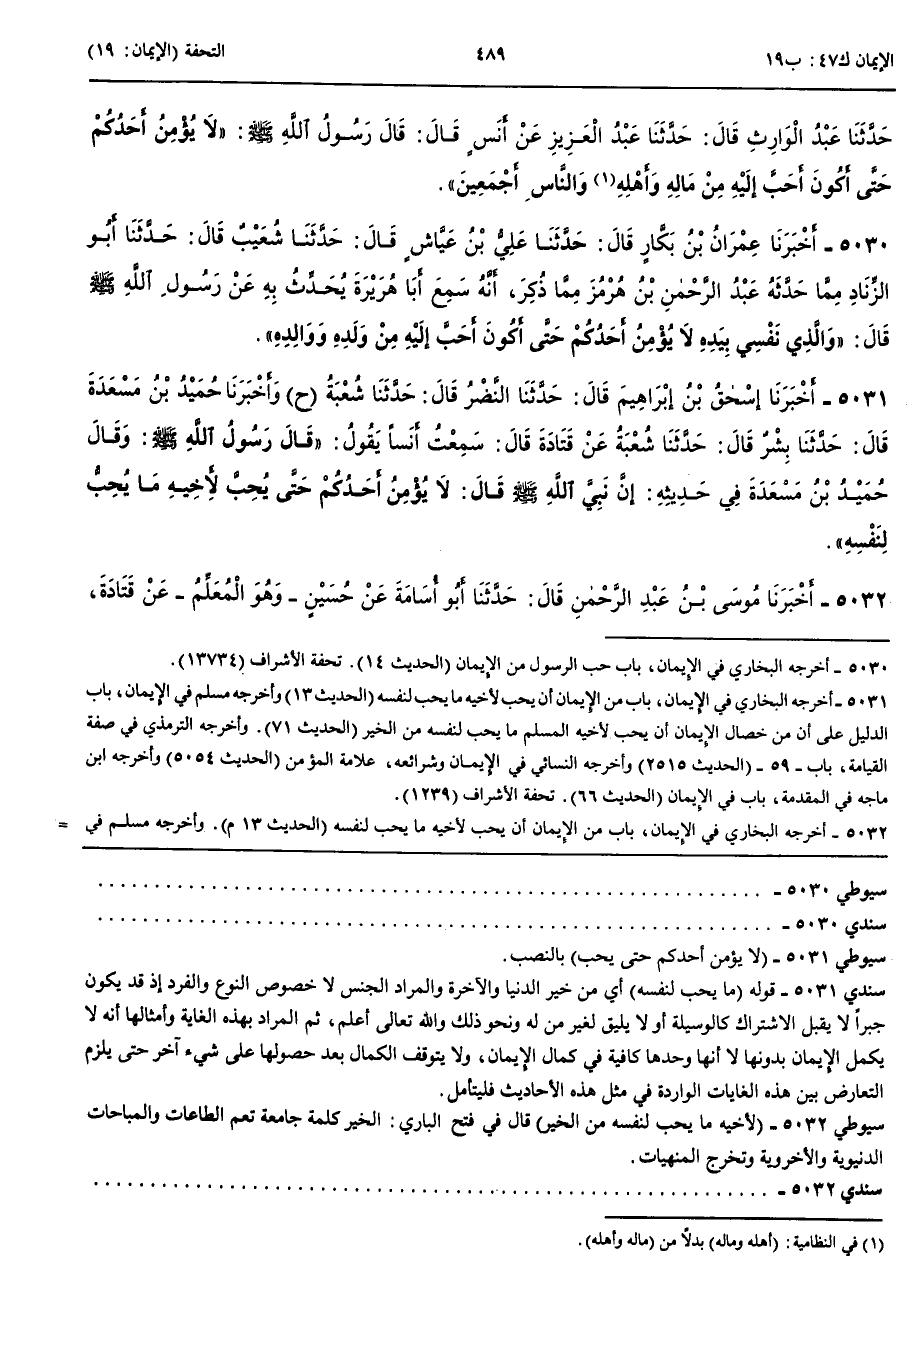 الإيمان ك٤٧: ب١٩ ٤٨٩ التحفة (الإيمان: ١٩)
حَدَّثَنَا عَبْدُ الْوَارِثِ قَالَ: حَدَّثَنَا عَبْدُ الْعَزِيزِ عَنْ أَنَسٍ قَالَ: قَالَ رَسُولُ اللَّهِ ﷺ: «لَا يُؤْمِنُ أَحَدُكُمْ
حَتَّى أَكُونَ أَحَبَّ إِلَيْهِ مِنْ مَالِهِ وَأَهْلِهِ(١) وَالنَّاسِ أَجْمَعِينَ».
٥٠٣٠ ـ أَخْبَرَنَا عِمْرَانُ بْنُ بَكَّارٍ قَالَ: حَدَّثَنَا عَلِيُّ بْنُ عَيَّاشٍ قَالَ: حَدَّثَنَا شُعَيْبٌ قَالَ: حَدَّثَنَا أَبُو
الزِّنَادِ مِمَّا حَدَّثَهُ عَبْدُ الرَّحْمٰنِ بْنُ هُرْمُزَ مِمَّا ذُكِرَ، أَنَّهُ سَمِعَ أَبَا هُرَيْرَةَ يُحَدِّثُ بِهِ عَنْ رَسُولِ اللَّهِ ﷺ
قَالَ: «وَالَّذِي نَفْسِي بِيَدِهِ لَا يُؤْمِنُ أَحَدُكُمْ حَتَّى أَكُونَ أَحَبَّ إِلَيْهِ مِنْ وَلَدِهِ وَوَالِدِهِ».
٥٠٣١ ـ أَخْبَرَنَا إِسْحٰقُ بْنُ إِبْرَاهِيمَ قَالَ: حَدَّثَنَا النَّضْرُ قَالَ: حَدَّثَنَا شُعْبَةُ (ح) وَأَخْبَرَنَا حُمَيْدُ بْنُ مَسْعَدَةَ
قَالَ: حَدَّثَنَا بِشْرٌ قَالَ: حَدَّثَنَا شُعْبَةُ عَنْ قَتَادَةَ قَالَ: سَمِعْتُ أَنَساً يَقُولُ: «قَالَ رَسُولُ اللَّهِ ﷺ: وَقَالَ
حُمَيْدُ بْنُ مَسْعَدَةَ فِي حَدِيثِهِ: إِنَّ نَبِيَّ اللَّهِ ﷺ قَالَ: لَا يُؤْمِنُ أَحَدُكُمْ حَتَّى يُحِبَّ لأَخِيهِ مَا يُحِبُّ
لِنَفْسِهِ».
٥٠٣٢ ـ أَخْبَرَنَا مُوسَى بْنُ عَبْدِ الرَّحْمٰنِ قَالَ: حَدَّثَنَا أَبُو أُسَامَةَ عَنْ حُسَيْنٍ ـ وَهُوَ الْمُعَلِّمُ ـ عَنْ قَتَادَةَ،
٥٠٣٠ ـ أخرجه البخاري في الإيمان، باب حب الرسول من الإيمان (الحديث ١٤). تحفة الأشراف (١٣٧٣٤).
٥٠٣١ ـ أخرجه البخاري في الإيمان، باب من الإيمان أن يحب لأخيه ما يحب لنفسه (الحديث ١٣) وأخرجه مسلم في الإيمان، باب
الدليل على أن من خصال الإيمان أن يحب لأخيه المسلم ما يحب لنفسه من الخير (الحديث ٧١). وأخرجه الترمذي في صفة
القيامة، باب ـ ٥٩ ـ (الحديث ٢٥١٥) وأخرجه النسائي في الإيمان وشرائعه، علامة المؤمن (الحديث ٥٠٥٤) وأخرجه ابن
ماجه في المقدمة، باب في الإيمان (الحديث ٦٦). تحفة الأشراف (١٢٣٩).
٥٠٣٢ ـ أخرجه البخاري في الإيمان، باب من الإيمان أن يحب لأخيه ما يحب لنفسه (الحديث ١٣ م). وأخرجه مسلم في =
سيوطي ٥٠٣٠ ـ ................................................
سندي ٥٠٣٠ ـ ................................................
سيوطي ٥٠٣١ ـ (لا يؤمن أحدكم حتى يحب) بالنصب.
سندي ٥٠٣١ ـ قوله (ما يحب لنفسه) أي من خير الدنيا والآخرة والمراد الجنس لا خصوص النوع والفرد إذ قد يكون
جبراً لا يقبل الاشتراك كالوسيلة أو لا يليق لغير من له ونحو ذلك والله تعالى أعلم، ثم المراد بهذه الغاية وأمثالها أنه لا
يكمل الإيمان بدونها لا أنها وحدها كافية في كمال الإيمان، ولا يتوقف الكمال بعد حصولها على شيء آخر حتى يلزم
التعارض بين هذه الغايات الواردة في مثل هذه الأحاديث فليتأمل.
سيوطي ٥٠٣٢ ـ (لأخيه ما يحب لنفسه من الخير) قال في فتح الباري: الخير كلمة جامعة تعم الطاعات والمباحات
الدنيوية والأخروية وتخرج المنهيات.
سندي ٥٠٣٢ ـ ................................................
(١) في النظامية: (أهله وماله) بدلاً من (ماله وأهله).